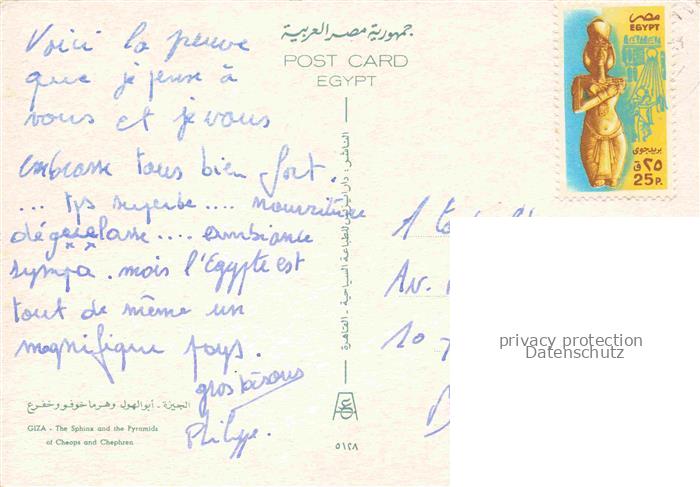 Voici la preuve
que je pense à
vous et je vous
embrasse tous bien fort.
... tps superbe .... nourriture
dégueulasse .... ambiance
sympa. mais l'Egypte est
tout de même un
magnifique pays.
gros bisous
Philippe.
الجيزة - أبو الهول وهرما خوفو وخفرع
GIZA - The Sphinx and the Pyramids
of Cheops and Chephren
جمهورية مصر العربية
POST CARD
EGYPT
٥١٢٨
مصر
EGYPT
بريد جوى
٢٥ ق
25 P.
1
Av.
10
privacy protection
Datenschutz